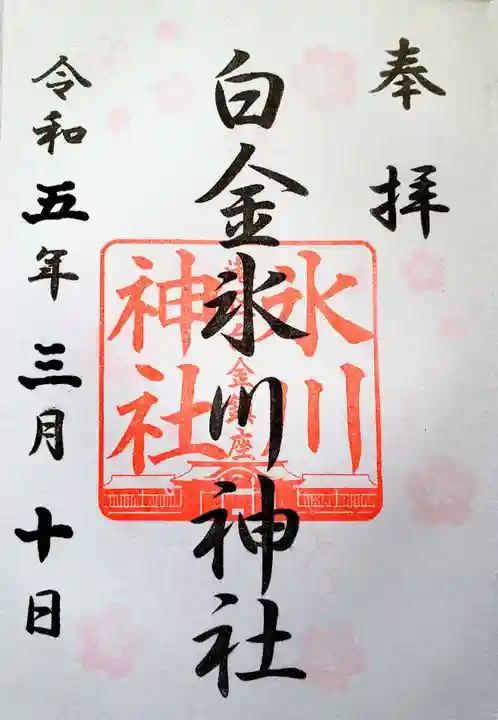 奉拝
白金氷川神社
氷川
神社
令和五年三月十日